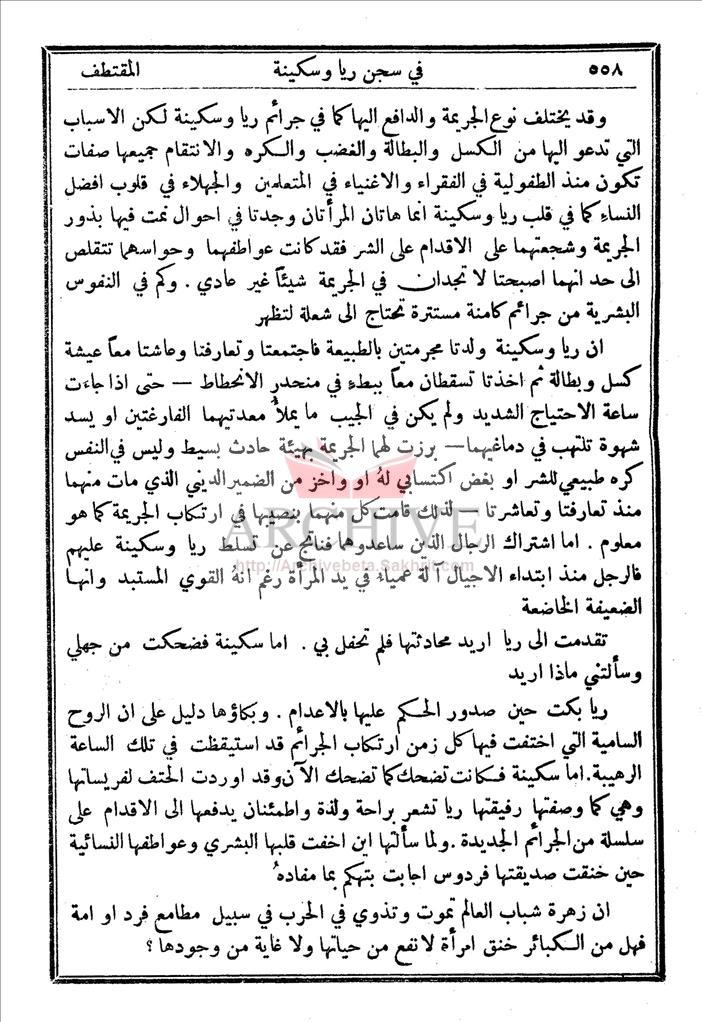 ٥٥٨ في سجن ريا وسكينة المقتطف
وقد يختلف نوع الجريمة والدافع اليها كما في جرائم ريا وسكينة لكن الاسباب
التي تدعو اليها من الكسل والبطالة والغضب والكره والانتقام جميعها صفات
تكون منذ الطفولية في الفقراء والاغنياء في المتعلمين والجهلاء في قلوب افضل
النساء كما في قلب ريا وسكينة انما هاتان المرأتان وجدتا في احوال نمت فيها بذور
الجريمة وشجعتهما على الاقدام على الشر فقد كانت عواطفهما وحواسهما تتقلص
الى حد انهما اصبحتا لا تجدان في الجريمة شيئاً غير عادي . وكم في النفوس
البشرية من جرائم كامنة مستترة تحتاج الى شعلة لتظهر
ان ريا وسكينة ولدتا مجرمتين بالطبيعة فاجتمعتا وتعارفتا وعاشتا معاً عيشة
كسل وبطالة ثم اخذتا تسقطان معاً ببطءٍ في منحدر الانحطاط — حتى اذا جاءت
ساعة الاحتياج الشديد ولم يكن في الجيب ما يملأ معدتيهما الفارغتين او يسد
شهوة تلتهب في دماغيهما — برزت لهما الجريمة بهيئة حادث بسيط وليس في النفس
كره طبيعي للشر او بغض اكتسابي لهُ او واخز من الضمير الديني الذي مات منهما
منذ تعارفتا وتعاشرتا — لذلك قامت كل منهما بنصيبها في ارتكاب الجريمة كما هو
معلوم . اما اشتراك الرجال الذين ساعدوهما فناتج عن تسلط ريا وسكينة عليهم
فالرجل منذ ابتداء الاجيال آلة عمياءُ في يد المرأة رغم انهُ القوي المستبد وانها
الضعيفة الخاضعة
تقدمت الى ريا اريد محادثتها فلم تحفل بي . اما سكينة فضحكت من جهلي
وسألتني ماذا اريد
ريا بكت حين صدور الحكم عليها بالاعدام . وبكاؤها دليل على ان الروح
السامية التي اختفت فيها كل زمن ارتكاب الجرائم قد استيقظت في تلك الساعة
الرهيبة. اما سكينة فكانت تضحك كما تضحك الآن وقد اوردت الحتف لفريساتها
وهي كما وصفتها رفيقتها ريا تشعر براحة ولذة واطمئنان يدفعها الى الاقدام على
سلسلة من الجرائم الجديدة . ولما سألتها اين اخفت قلبها البشري وعواطفها النسائية
حين خنقت صديقتها فردوس اجابت بتهكم بما مفادهُ
ان زهرة شباب العالم تموت وتذوي في الحرب في سبيل مطامع فرد او امة
فهل من الكبائر خنق امرأة لا نفع من حياتها ولا غاية من وجودها ؟
ARCHIVE
http://Archivebeta.Sakhrit.com